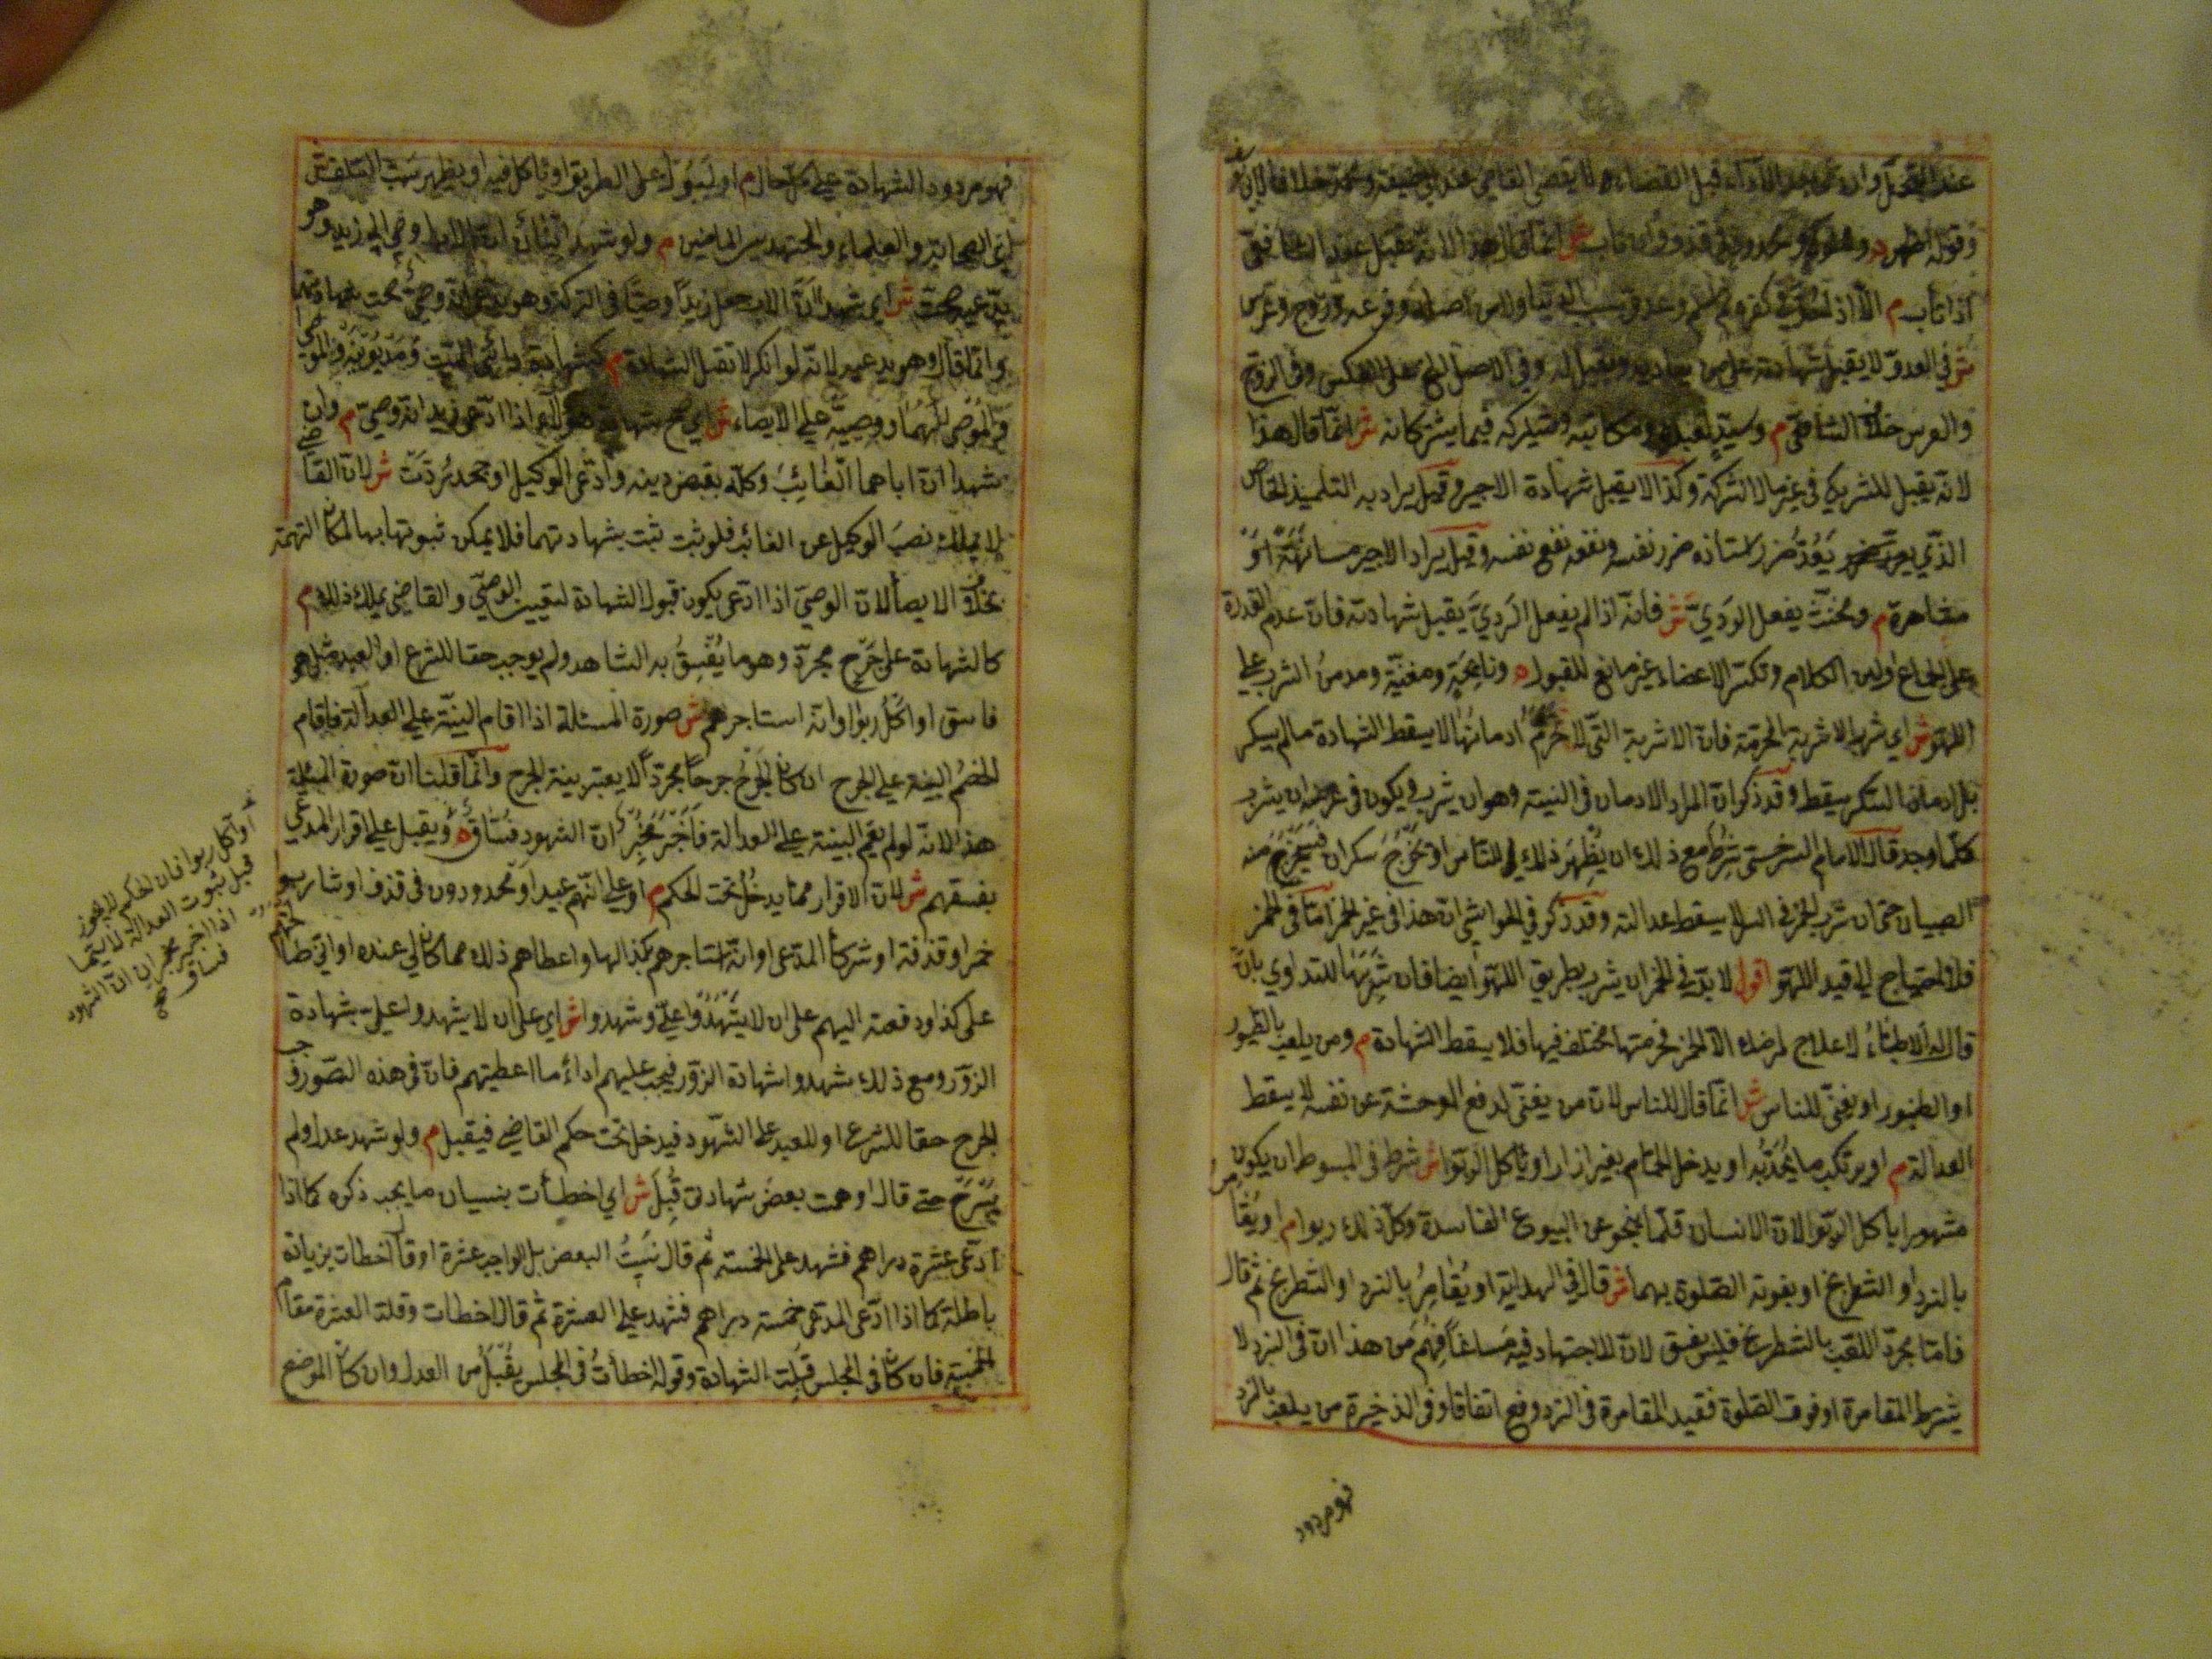 عند التحمل وان عمي بعد الاداء قبل القضاء لا يقضي القاضي عند ابي حنيفة ومحمد خلافا لابي يوسف
وقوله اظهر ومملوك ومحدود في قذف وان تاب ش انما قال هذا لانه يقبل عند الشافعي
اذا تاب م الا اذا حد في كفره ثم اسلم وعدو بسبب الدنيا ولا من اصله وفرعه وزوج وعرس
ش في العدو لا يقبل شهادته على من يعاديه ويقبل له وفي الاصل الخ على العكس وفي الزوج
والعرس خلاف الشافعي م وسيد لعبده ومكاتبه وشريكه فيما يشتركانه ش انما قال هذا
لانه يقبل للشريك في غير مال الشركة وكذا لا يقبل شهادة الاجير وقيل يراد به التلميذ الخاص
الذي يعد ضرر استاذه ضرر نفسه ونفعه نفع نفسه وقيل يراد الاجير مسانهة او
مشاهرة م ومخنث يفعل الردي ش فانه اذا لم يفعل الردي يقبل شهادته فان عدم القدرة
على الجماع ولين الكلام وتكسر الاعضاء غير مانع للقبول م ونايحة ومغنية ومدمن الشرب على
اللهو ش اي شرب الاشربة المحرمة فان الاشربة التي لا تحرم ادمانها لا يسقط الشهادة مالم يسكر
بل ادمان السكر يسقط وقد ذكر ان المراد الادمان في النية وهو ان يشرب ويكون في عزمه ان يشرب
كلما وجد قال الامام السرخسي شرط مع ذلك ان يظهر ذلك للناس او يخرج سكران فيسخر منه
الصبيان حتى ان شرب الخمر في السر لا يسقط عدالته وقد ذكر في الحواشي ان هذا في غير الخمر اما في الخمر
فلا احتياج الى قيد اللهو اقول لا بد في الخمر ان يشرب بطريق اللهو ايضا فان شربها للتداوي بان
قال له الاطباء لا علاج لمرضك الا الخمر فحرمتها مختلف فيها فلا يسقط الشهادة م ومن يلعب بالطيور
او الطنبور او يغني للناس ش انما قال للناس لان من يغني لدفع الوحشة عن نفسه لا يسقط
العدالة م او يرتكب ما يحد به او يدخل الحمام بغير ازار او ياكل الربوا ش شرط في المبسوط ان يكون
مشهورا باكل الربوا لان الانسان قلما ينجو عن البيوع الفاسدة وكل ذلك ربوا م او يقامر
بالنرد او الشطرنج او يفوته الصلوة بهما ش قال في الهداية او يقامر بالنرد او الشطرنج ثم قال
فاما مجرد اللعب بالشطرنج فليس بفسق لان للاجتهاد فيه مساغا ففهم من هذا ان في النرد لا
يشترط المقامرة او فوت الصلوة فقيد المقامرة في النرد وقع اتفاقا وفي الذخيرة من يلعب بالنرد
فهو مردود
فهو مردود الشهادة على كل حال م او يبول على الطريق او ياكل فيه او يظهر سب السلف ش
اي الصحابة والعلماء والمجتهدين الماضين م ولو شهد ابنان ان الاب اوصى الى زيد وهو
يدعيه صحت ش اي شهدا ان الاب جعل زيدا وصيا في التركة وهو يدعي انه وصي صحت شهادتهما
وانما قال وهو يدعيه لانه لو انكر لا تقبل الشهادة م كشهادة دائني الميت ومديونيه والموصى
لهما ووصييه على الايصاء ش اي صح شهادة هؤلاء اذا ادعى زيد انه وصي م وان
شهدا ان اباهما الغائب وكله بقبض دينه وادعى الوكيل او جحد ردت ش لان القاضي
لا يملك نصب الوكيل عن الغائب فلو ثبت ثبت بشهادتهما فلا يمكن ثبوتها بها لمكان التهمة
بخلاف الايصاء لان الوصي اذا ادعى يكون قبول الشهادة لتعيين الوصي والقاضي يملك ذلك م
كالشهادة على جرح مجرد وهو ما يفسق به الشاهد ولم يوجب حقا للشرع او العبد مثل هو
فاسق او اكل ربوا وانه استاجرهم ش صورة المسئلة اذا اقام البينة على العدالة فاقام
الخصم البينة على الجرح ان كان الجرح جرحا مجردا لا يعتبر بينة الجرح وانما قلنا ان صورة المسئلة
هذا لانه لو لم يقم البينة على العدالة فاخبر مخبر ان الشهود فساق م ويقبل على اقرار المدعي
بفسقهم ش لان الاقرار مما يدخل تحت الحكم م او على انهم عبيد او محدودون في قذف او شاربو
خمر او قذفة او شركاء المدعي او انه استاجرهم بكذا لها واعطاهم ذلك مما كان لي عنده او اني صالحتهم
على كذا ودفعته اليهم على ان لا يشهدوا علي وشهدوا ش اي على ان لا يشهدوا علي شهادة
الزور ومع ذلك شهدوا شهادة الزور فيجب عليهم اداء ما اعطيتهم فان في هذه الصور
الجرح حقا للشرع او للعبد على الشهود فيدخل تحت حكم القاضي فيقبل م ولو شهد عدل ولم
يبرح حتى قال اوهمت بعض شهادتي قبل ش اي اخطأت بنسيان ما يجب ذكره كما اذا
ادعى عشرة دراهم فشهد على الخمسة ثم قال نسيت البعض بل الواجب عشرة او قال اخطات بزيادة
باطلة كما اذا ادعى المدعي خمسة دراهم فشهد على العشرة ثم قال اخطات وقلت العشرة مقام
الخمسة فان كان في المجلس قبلت الشهادة وقوله اخطأت في المجلس يقبل من العدل وان كان الموضع
او آكل ربوا فان الحكم لا يجوز
قبل ثبوت العدالة لا سيما
اذا اخبر مخبران ان الشهود
فساق صح